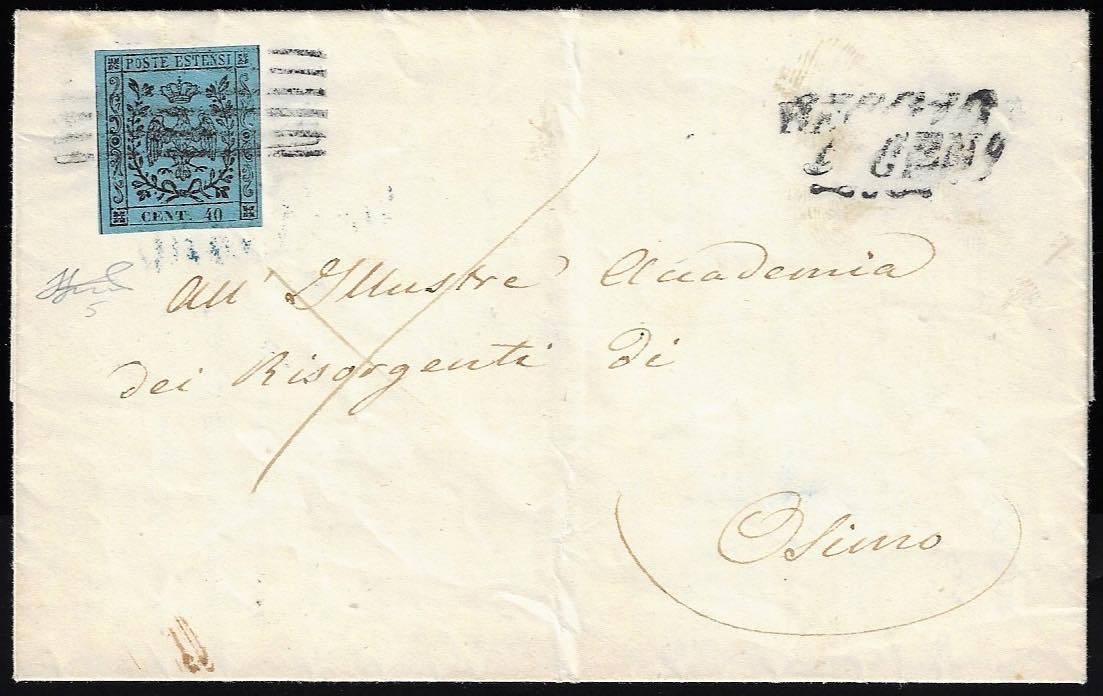 POSTE ESTENSI
CENT. 40
REGGIO
GEN
All' Illustre Accademia
dei Risorgenti di
Osimo